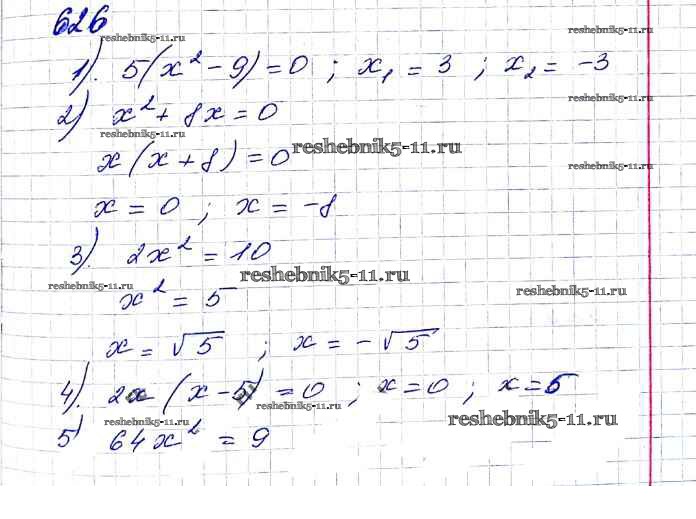 626
reshebnik5-11.ru
reshebnik5-11.ru
1). 5(x² - 9) = 0 ; x₁ = 3 ; x₂ = -3
reshebnik5-11.ru
2) x² + 8x = 0
reshebnik5-11.ru
reshebnik5-11.ru
x(x + 8) = 0
reshebnik5-11.ru
x = 0 ; x = -8
3). 2x² = 10
reshebnik5-11.ru
reshebnik5-11.ru
reshebnik5-11.ru
x² = 5
x = √5 ; x = -√5
4). 2x (x - 5) = 0 ; x = 0 ; x = 5
reshebnik5-11.ru
reshebnik5-11.ru
5) 64x² = 9